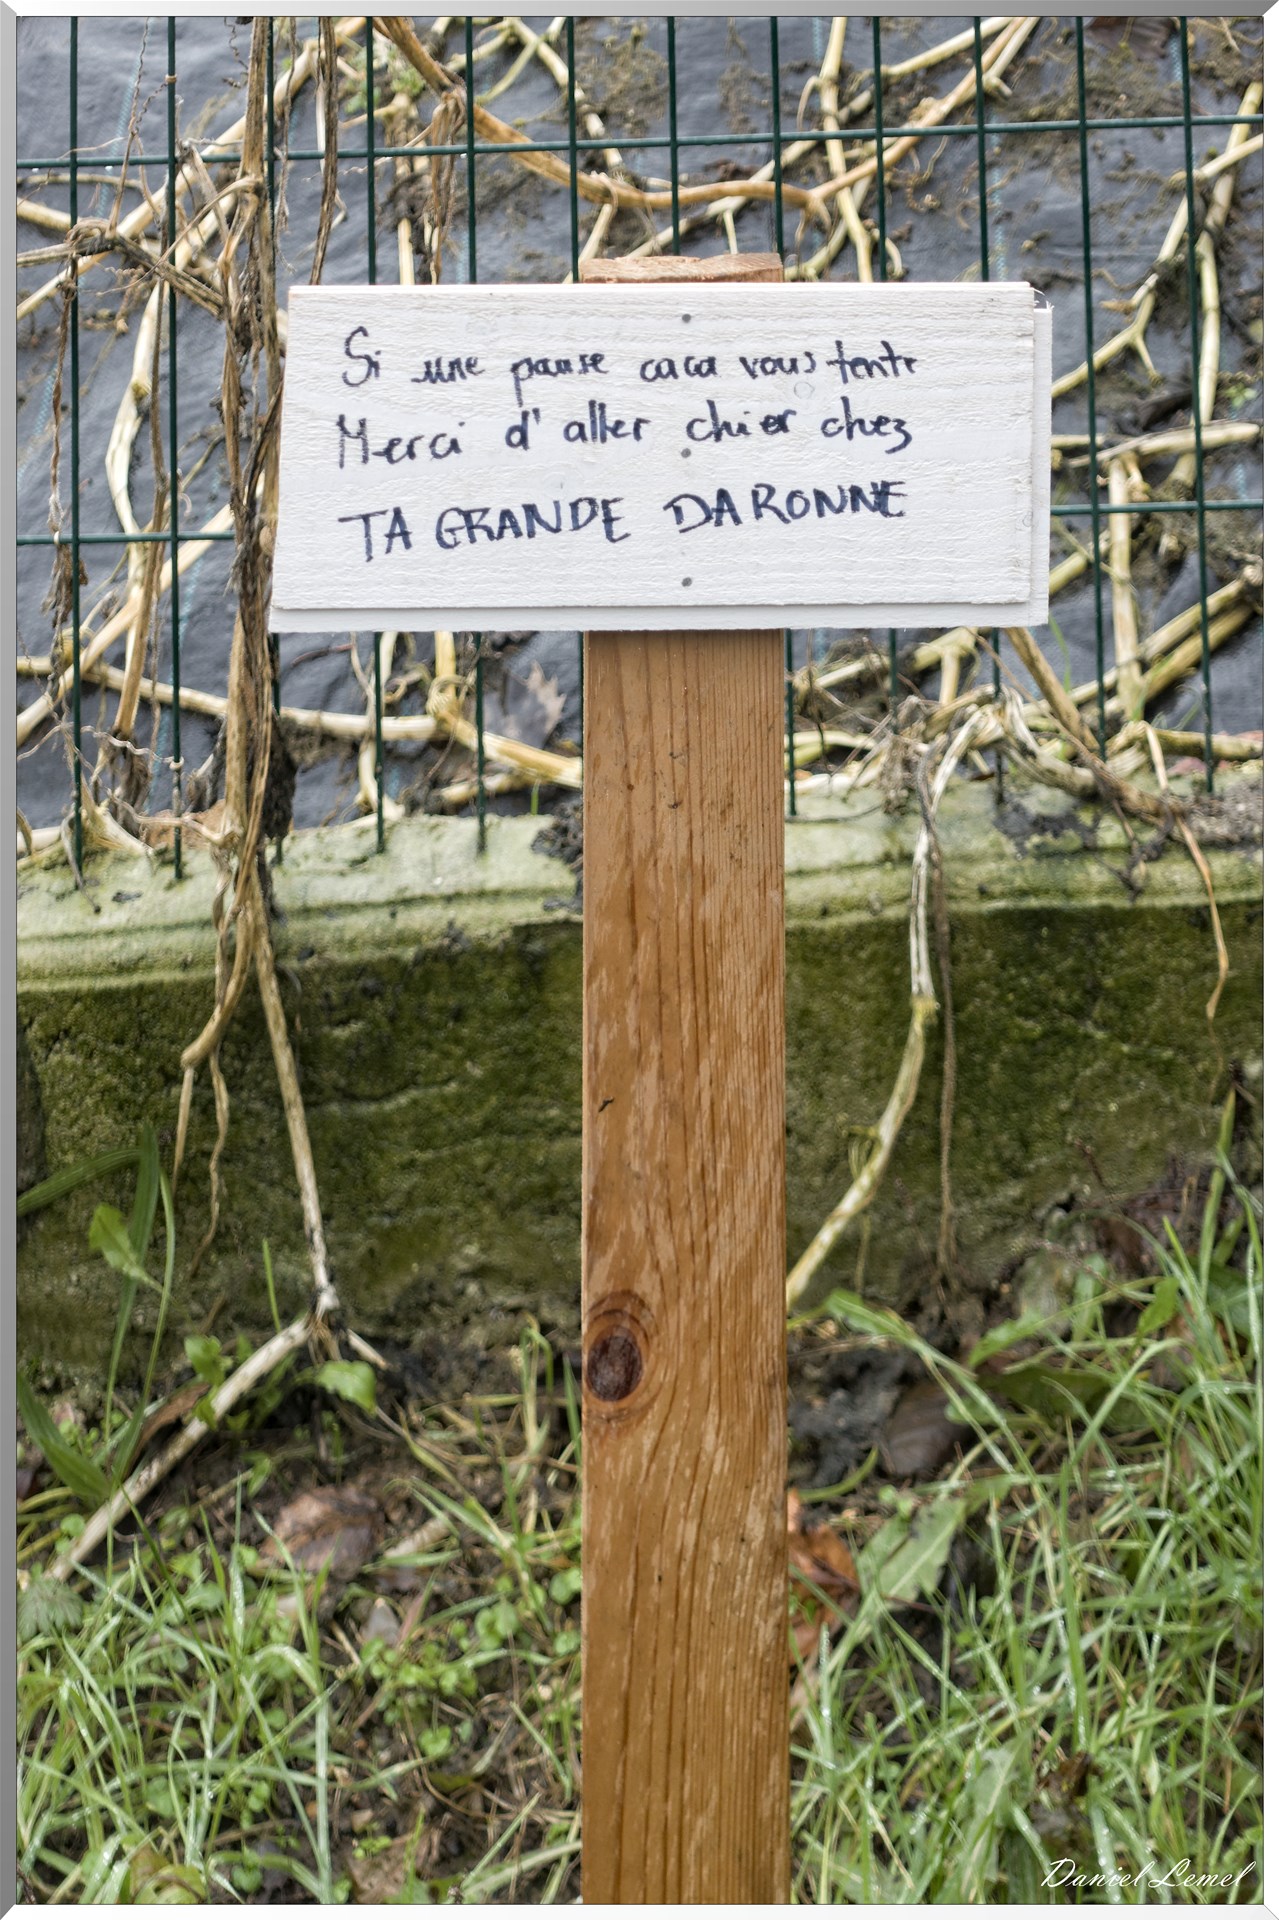 Si une pause caca vous tente
Merci d'aller chier chez
TA GRANDE DARONNE
Daniel Lemel